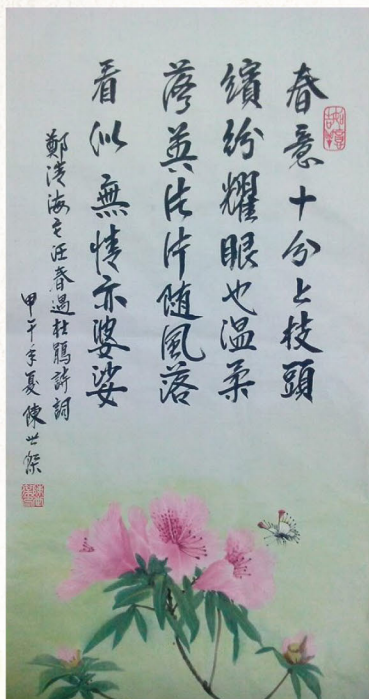 春意十分上枝頭
繽紛耀眼也溫柔
落英片片随風落
看似無情亦婆娑
鄭清海老師春遇杜鵑詩詞
甲午年夏陳世傑